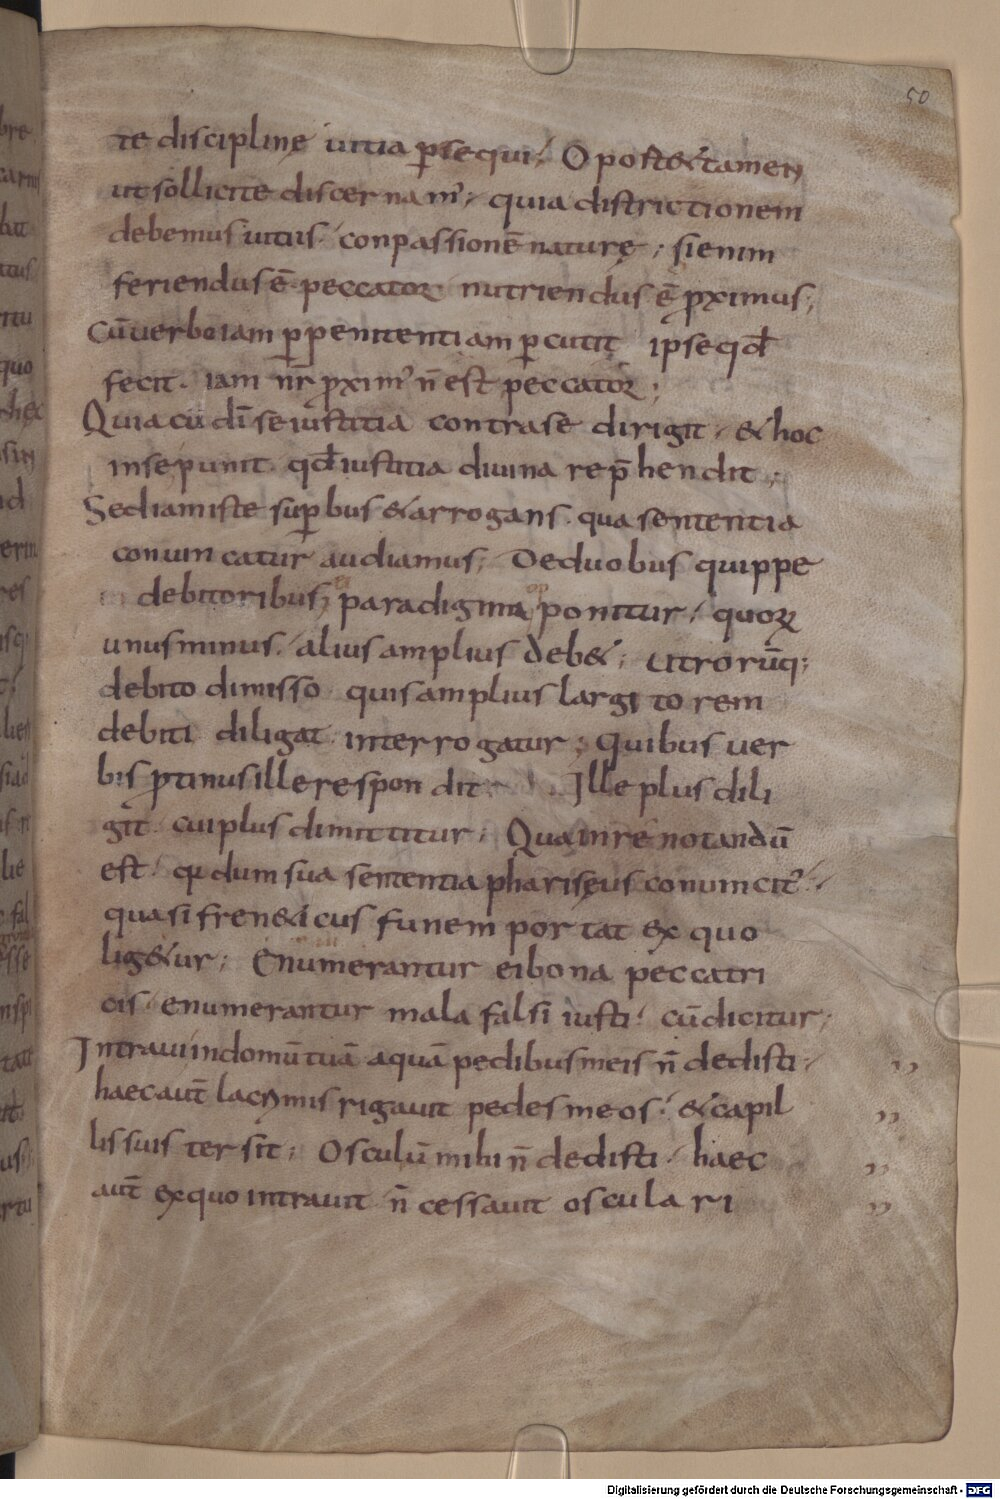 50
te disciplinę uitia ꝑsequi; Oportet& tamen
ut sollicite discernam'; quia districtionem
debemus uitiis conpassionē naturę; si enim
feriendus ē peccator nutriendus ē ꝓximus;
Cū uero iam ꝑ penitentiam ꝑcutit ipse qđ
fecit. iam nr̄ ꝓxim' n̄ est peccator;
Quia cū dī se iustitia contra se dirigit, & hoc
in se punit qđ iustitia diuina rep̄hendit;
Sed iam iste suꝑbus & arrogans. qua sententia
conuincatur audiamus; De duobus quippe
debitoribus paradigma ponitur, quoꝝ
unus minus, alius amplius deb&; utrorūq;
debito dimisso quis amplius largitorem
debiti diligat interrogatur; Quibus uer
bis ꝓtinus ille respondit; Ille plus dili
git cui plus dimittitur; Qua in re notandū
est. qɖ dum sua sententia pharisęus conuincit';
quasi fren&icus funem portat ex quo
lig&ur; Enumerantur ei bona peccatri
cis, enumerantur mala falsi iusti, cū dicitur;
Intraui in domū tuā aquā pedibus meis n̄ dedisti,
haec aut̄ lacrymis rigauit pedes meos; & capil
lis suis tersit; Osculū mihi n̄ dedisti, haec
aut̄ ex quo intrauit n̄ cessauit osculari
Digitalisierung gefördert durch die Deutsche Forschungsgemeinschaft - DFG